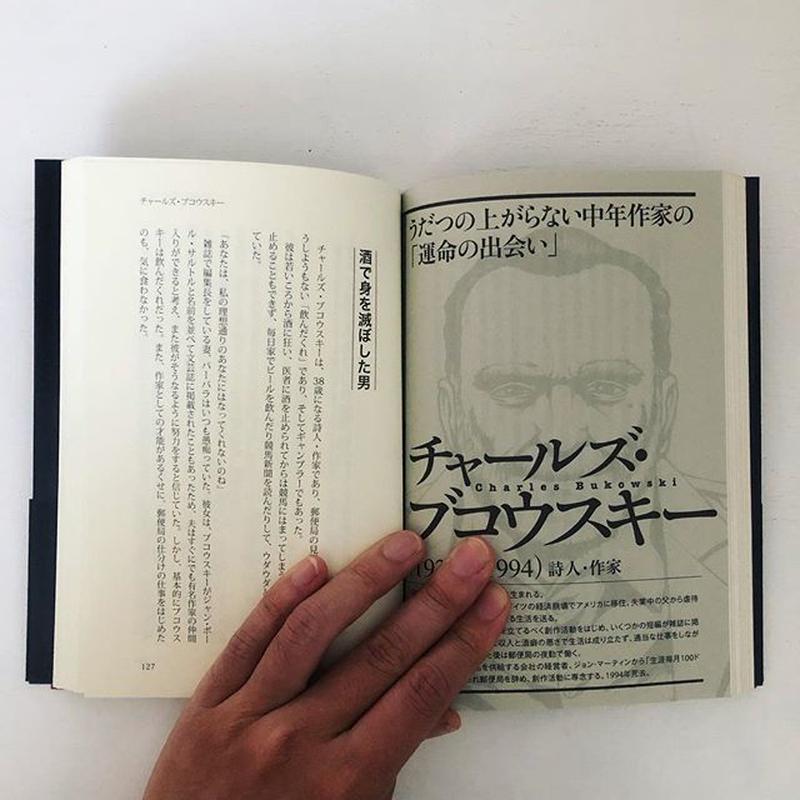 うだつの上がらない中年作家の
「運命の出会い」
チャールズ・
Charles Bukowski
ブコウスキー
994) 詩人・作家
生まれる。
イツの経済崩壊でアメリカに移住、失業中の父から虐待
る生活を送る。
を立てるべく創作活動をはじめ、いくつかの短編が雑誌に掲
収入と酒癖の悪さで生活は成り立たず、適当な仕事をしなが
後は郵便局の夜勤で働く。
を供給する会社の経営者、ジョン・マーティンから「生涯毎月100ド
れ郵便局を辞め、創作活動に専念する。1994年死去。
チャールズ・ブコウスキー
酒で身を滅ぼした男
チャールズ・ブコウスキーは、38歳になる詩人・作家であり、郵便局の見
うしようもない「飲んだくれ」であり、そしてギャンブラーでもあった。
彼は若いころから酒に狂い、医者に酒を止められてからは競馬にはまってしまう
止めることもできず、毎日家でビールを飲んだり競馬新聞を読んだりして、ウダウダ
ていた。
「あなたは、私の理想通りのあなたにはなってくれないのね」
雑誌で編集長をしている妻、バーバラはいつも愚痴っていた。彼女は、ブコウスキーがジャン・ポー
ル・サルトルと名前を並べて文芸誌に掲載されたこともあったため、夫はすぐにでも有名作家の仲間
入りができると考え、また彼がそうなるように努力をすると信じていた。しかし、基本的にブコウス
キーは飲んだくれだった。また、作家としての才能があるくせに、郵便局の仕分けの仕事をはじめた
のも、気に食わなかった。
127